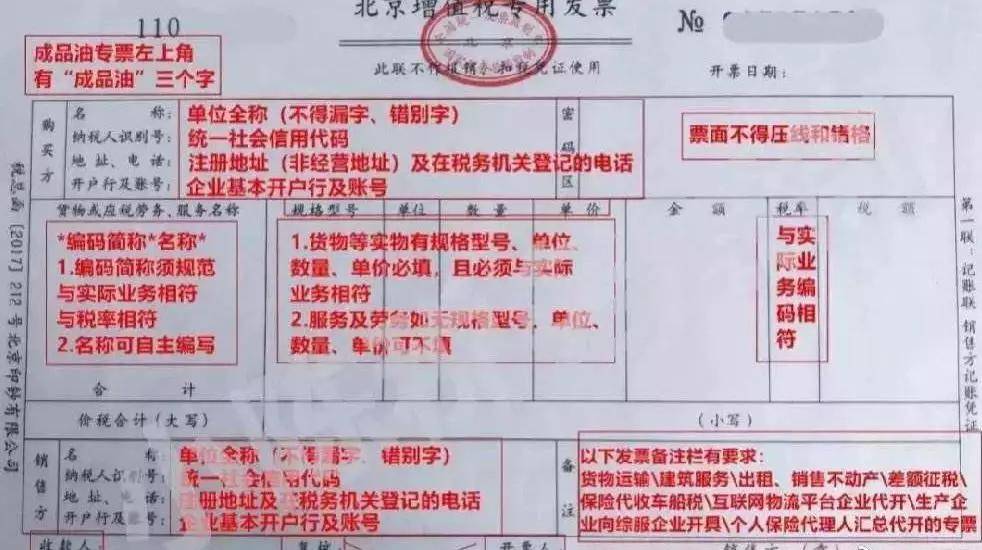 北京增值税专用发票
110
№
此联不作报销、扣税凭证使用
开票日期：
成品油专票左上角
有“成品油”三个字
购买方
名称：单位全称（不得漏字、错别字）
纳税人识别号：统一社会信用代码
地址、电话：注册地址（非经营地址）及在税务机关登记的电话
开户行及账号：企业基本开户行及账号
密码区
票面不得压线和错格
货物或应税劳务、服务名称 规格型号 单位 数量 单价 金额 税率 税额
*编码简称*名称*
1.编码简称须规范
与实际业务相符
与税率相符
2.名称可自主编写
1.货物等实物有规格型号、单位、
数量、单价必填，且必须与实际
业务相符
2.服务及劳务如无规格型号，单位、
数量、单价可不填
与实
际业
务编
码相
符
合计
价税合计（大写）
（小写）
销售方
名称：单位全称（不得漏字、错别字）
纳税人识别号：统一社会信用代码
地址、电话：注册地址及在税务机关登记的电话
开户行及账号：企业基本开户行及账号
备注
以下发票备注栏有要求：
货物运输\建筑服务\出租、销售不动产\差额征税\
保险代收车船税\互联网物流平台企业代开\生产企
业向综服企业开具\个人保险代理人汇总代开的专票
收款人：
复核：
开票人
税总函〔2017〕212号北京印钞有限公司
第一联：记账联 销售方记账凭证